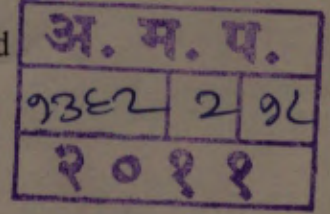 अ. म. प.
१३६२ २ १८
२०११